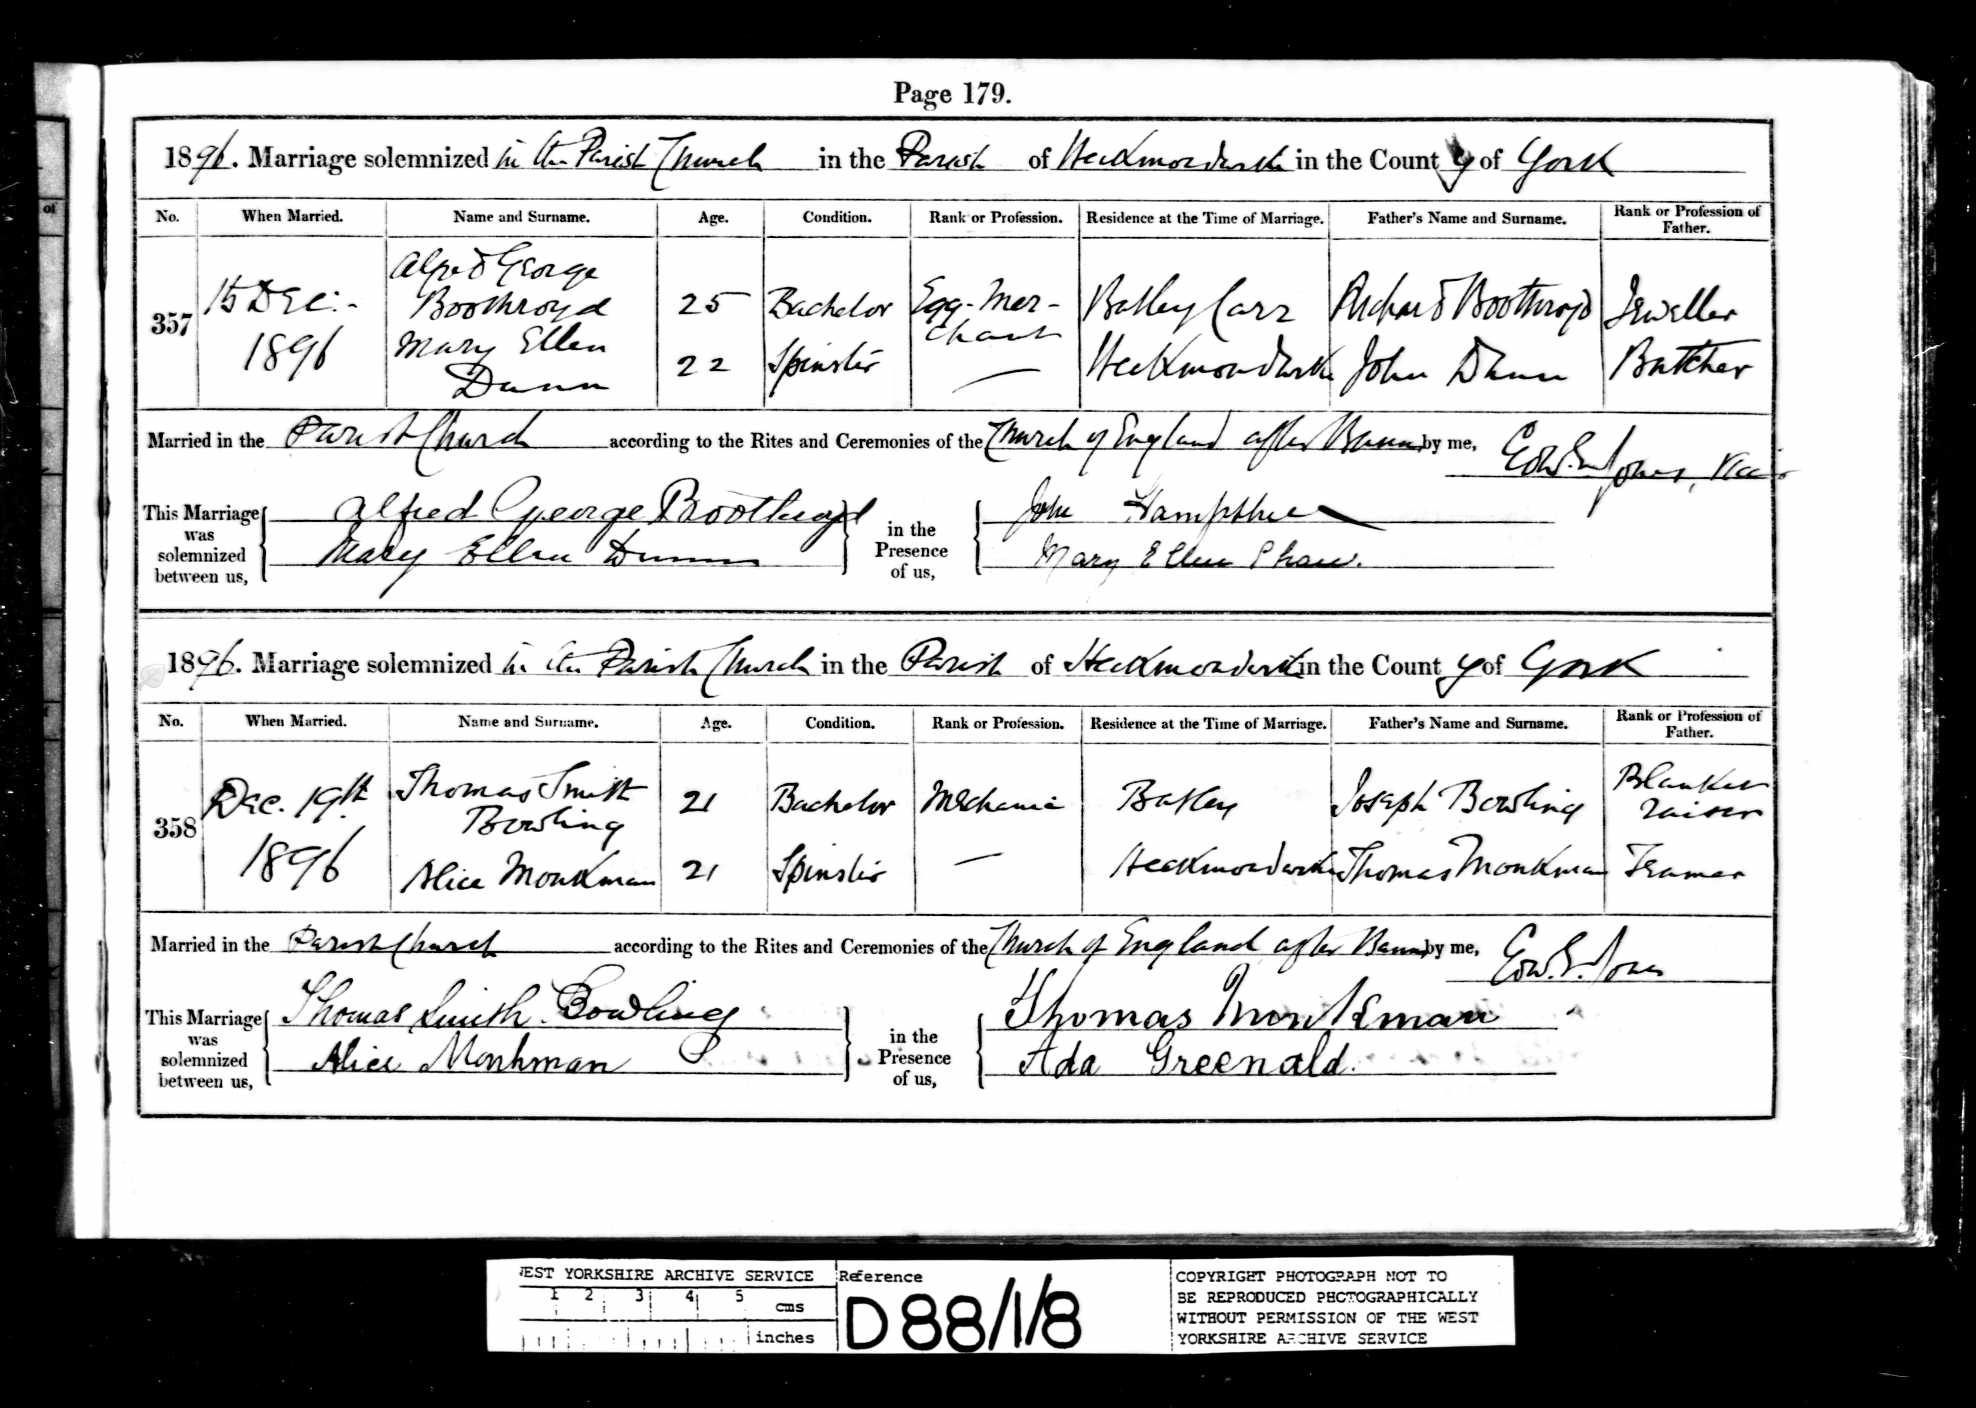 Page 179.
1896. Marriage solemnized in the Parish Church in the Parish of Heckmondwike in the County of York
No. When Married. Name and Surname. Age. Condition. Rank or Profession. Residence at the Time of Marriage. Father's Name and Surname. Rank or Profession of Father.
357 15 Dec:- 1896 Alfred George Boothroyd 25 Bachelor Egg-Mer-chant Batley Carr Richard Boothroyd Jeweller
Mary Ellen Dunn 22 Spinster — Heckmondwike John Dunn Butcher
Married in the Parish Church according to the Rites and Ceremonies of the Church of England after Banns by me, Edw. E. Jones, Vicar
This Marriage was solemnized between us, Alfred George Boothroyd
Mary Ellen Dunn
in the Presence of us, John Hampshire
Mary Ellen Shaw.
1896. Marriage solemnized in the Parish Church in the Parish of Heckmondwike in the County of York
No. When Married. Name and Surname. Age. Condition. Rank or Profession. Residence at the Time of Marriage. Father's Name and Surname. Rank or Profession of Father.
358 Dec. 19th 1896 Thomas Smith Bowling 21 Bachelor Mechanic Batley Joseph Bowling Blanket raiser
Alice Monkman 21 Spinster — Heckmondwike Thomas Monkman
Married in the Parish Church according to the Rites and Ceremonies of the Church of England after Banns by me, Edw. E. Jones
This Marriage was solemnized between us, Thomas Smith Bowling
Alice Monkman
in the Presence of us, Thomas Monkman
Ada Greenald.
WEST YORKSHIRE ARCHIVE SERVICE
1 2 3 4 5 cms
inches
Reference
D88/1/8
COPYRIGHT PHOTOGRAPH NOT TO
BE REPRODUCED PHOTOGRAPHICALLY
WITHOUT PERMISSION OF THE WEST
YORKSHIRE ARCHIVE SERVICE
of